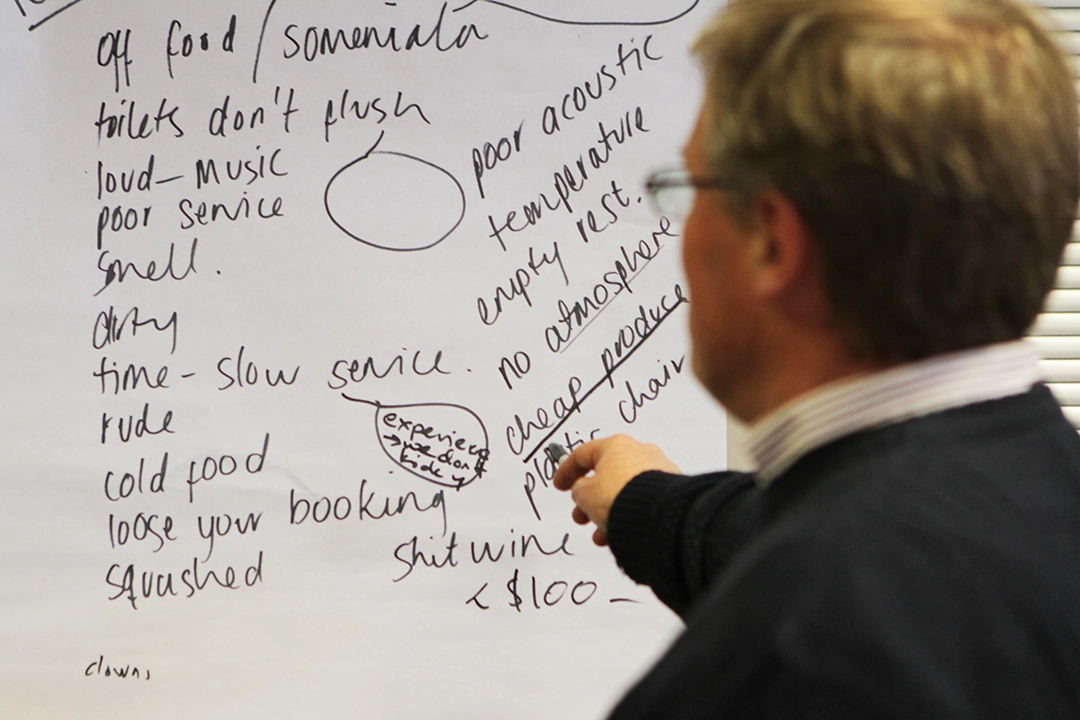 off food / someniala
toilets don't flush
loud - music
poor service
smell.
dirty
time - slow service.
rude
cold food
loose your booking
squashed
clowns
experience
→ we don't
hide
poor acoustic
temperature
empty rest.
no atmosphere
cheap produce
plastic chair
shit wine
< $100 -